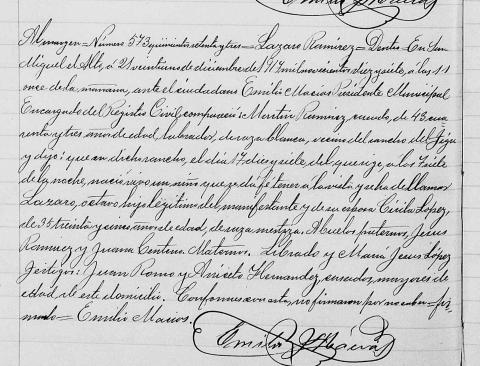 Al margen = Número 573 quinientos setenta y tres = Lazaro Ramirez = Dentro = En San
Miguel el Alto, á 21 veintiuno de diciembre de 1917 mil novecientos diez y siete, á las 11
once de la mañana, ante el ciudadano Emilio Macias Presidente Municipal
Encargado del Registro Civil compareció: Martin Ramirez, casado, de 43 cua
renta y tres años de edad, labrador, de raza blanca, vecino del rancho del
y dijo: que en dicho rancho, el día 17 diez y siete del que rige, a las 7 siete
de la noche, nació vivo un niño que se da fe tener a la vista y se ha de llamar
Lazaro, octavo, hijo legitimo del manifestante y de su esposa Cirila López,
de 35 treinta y cinco años de edad, de raza mestiza. Abuelos paternos, Jesus
Ramirez y Juana Centeno. Maternos. Librado y Maria Jesus López
Testigos: Juan Romo y Aniceto Hernandez, casados, mayores de
edad, de este domicilio. Conformes con esta, no firmaron por no saber = fir-
mado = Emilio Macias.
Emilio Macias